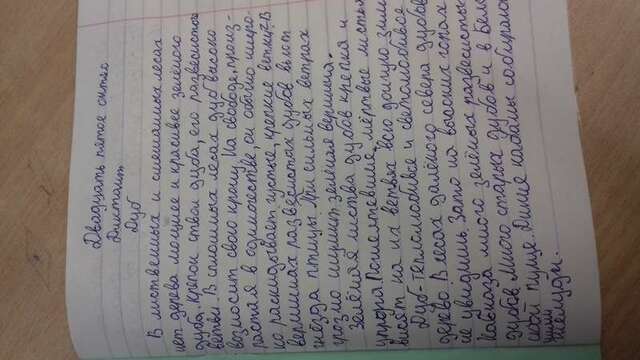 Двадцать пятое октяб
Диктант
Дуб
В лиственных и смешанных лесах
нет дерева мощнее и красивее зелёного
дуба. Крепок ствол дуба, его развесистые
ветви. В сплошных лесах дуб высоко
возносит свою крону. На свободе, произ-
растая в одиночестве, он обычно широ-
ко раскидывает густые, крепкие ветви. В
вершинах развесистых дубов вьют
гнёзда птицы. При сильных ветрах
грозно шумит зелёная вершина.
Зелёная листва дубов крепка и
упруга. Пожелтевшие, мёртвые листья
висят на их ветвях всю долгую зим
Дуб-теплолюбивое и светолюбивое
дерево. В лесах далёкого севера дубов
не увидишь. Зато на высоких горах
Кавказа много зелёных развесистых
дубов. Много старых дубов и в Бело
кой пуще. Дикие кабаны собирают
там жёлуди.